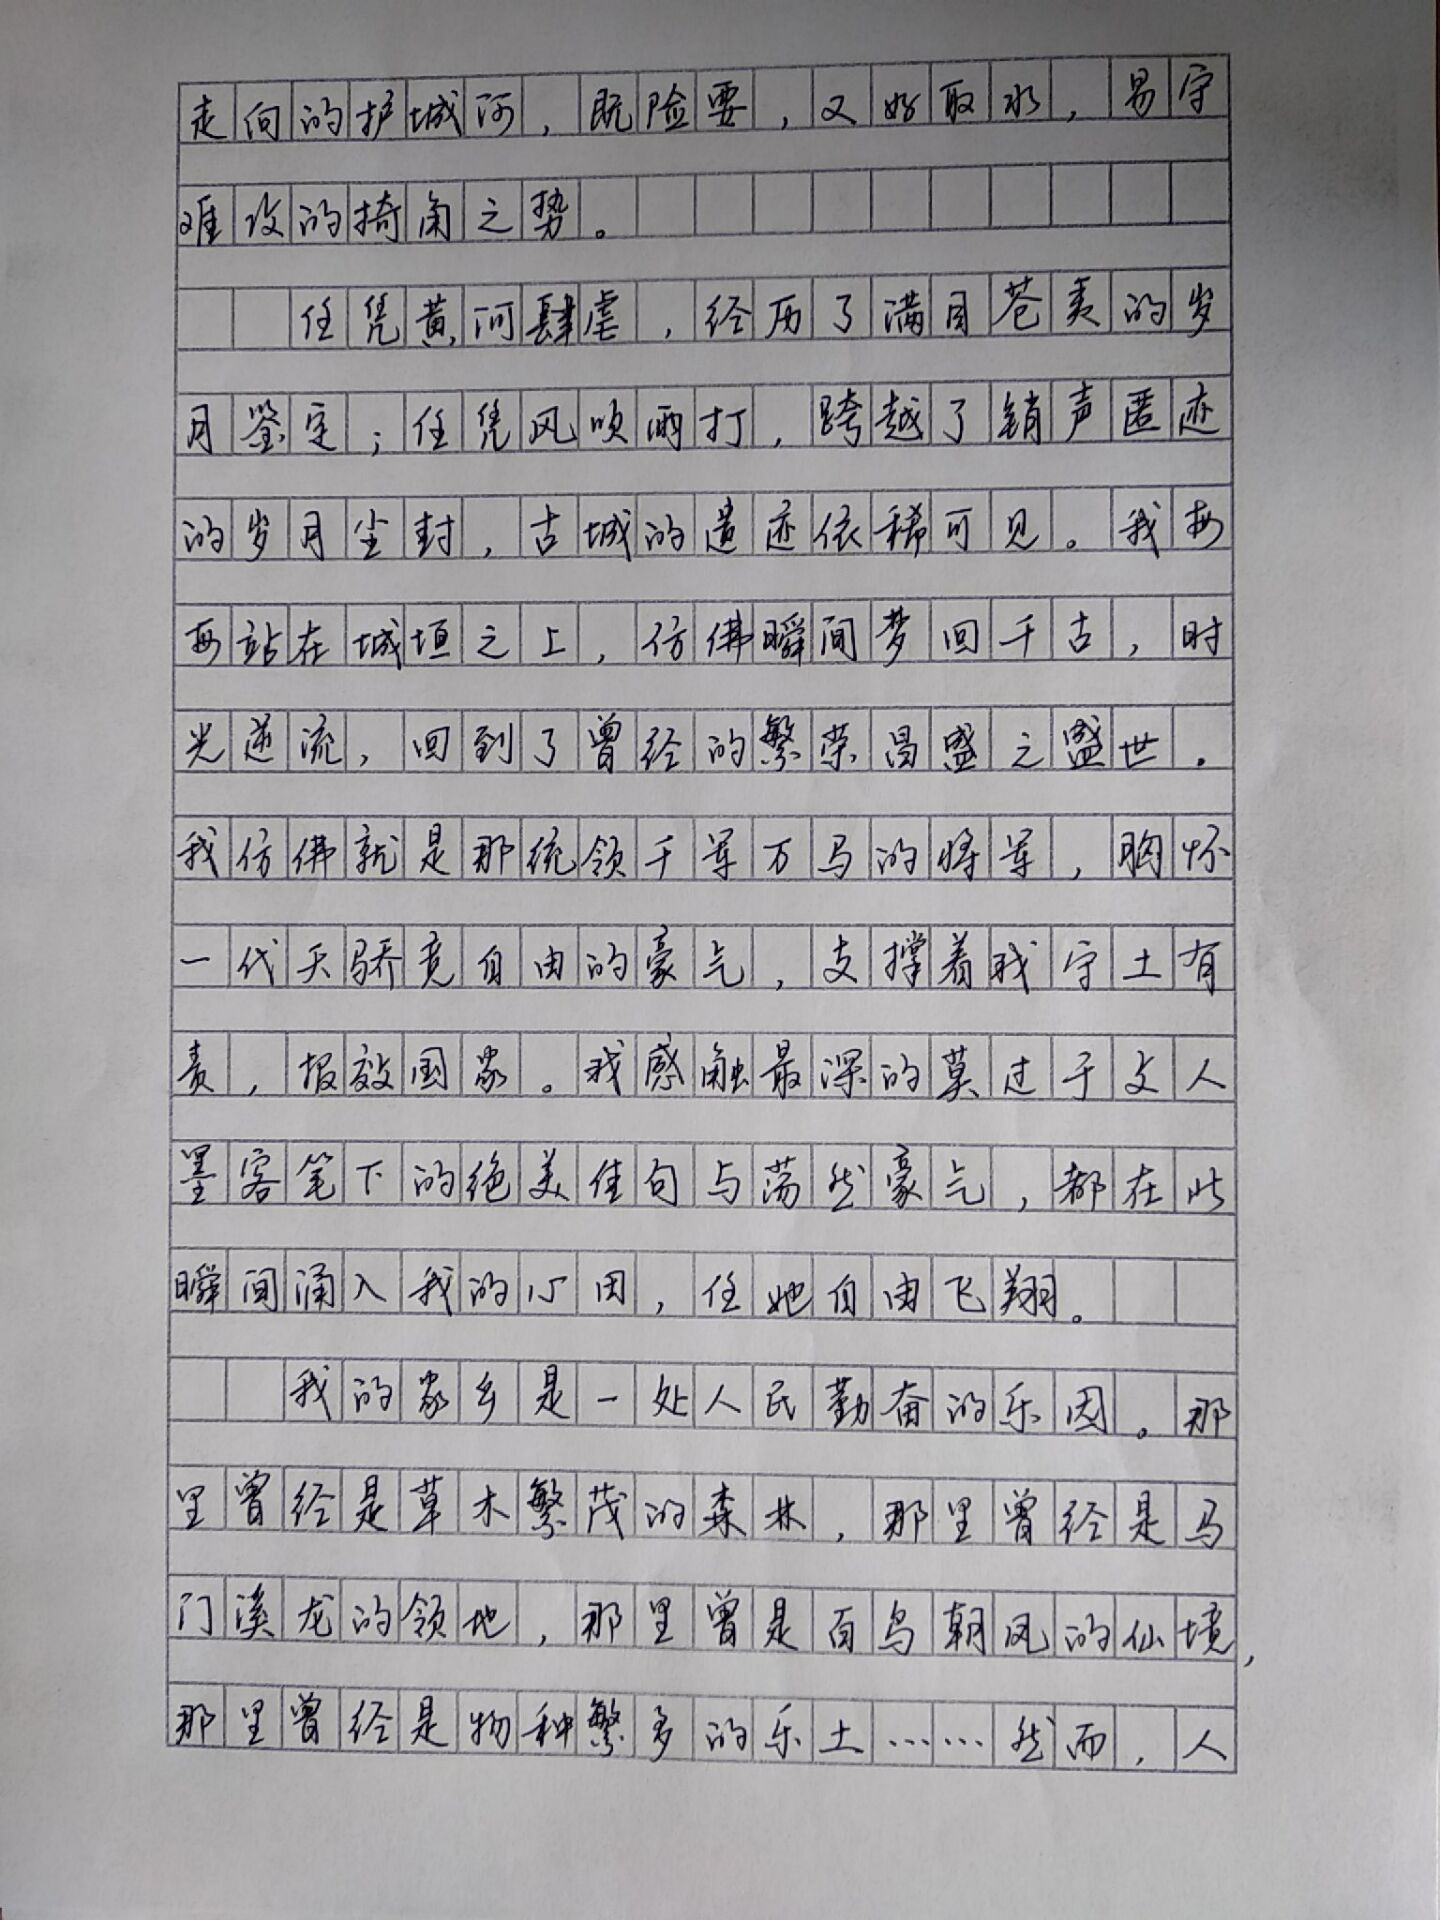 走向的护城河，既险要，又好取水，易守
难攻的掎角之势。
任凭黄河肆虐，经历了满目苍夷的岁
月鉴定；任凭风吹雨打，跨越了销声匿迹
的岁月尘封，古城的遗迹依稀可见。我每
每站在城垣之上，仿佛瞬间梦回千古，时
光逆流，回到了曾经的繁荣昌盛之盛世．
我仿佛就是那统领千军万马的将军，胸怀
一代天骄竞自由的豪气，支撑着我守土有
责，报效国家。我感触最深的莫过于文人
墨客笔下的绝美佳句与荡然豪气，都在此
瞬间涌入我的心田，任她自由飞翔。
我的家乡是一处人民勤奋的乐园。那
里曾经是草木繁茂的森林，那里曾经是马
门溪龙的领地，那里曾是百鸟朝凤的仙境，
那里曾经是物种繁多的乐土……然而，人